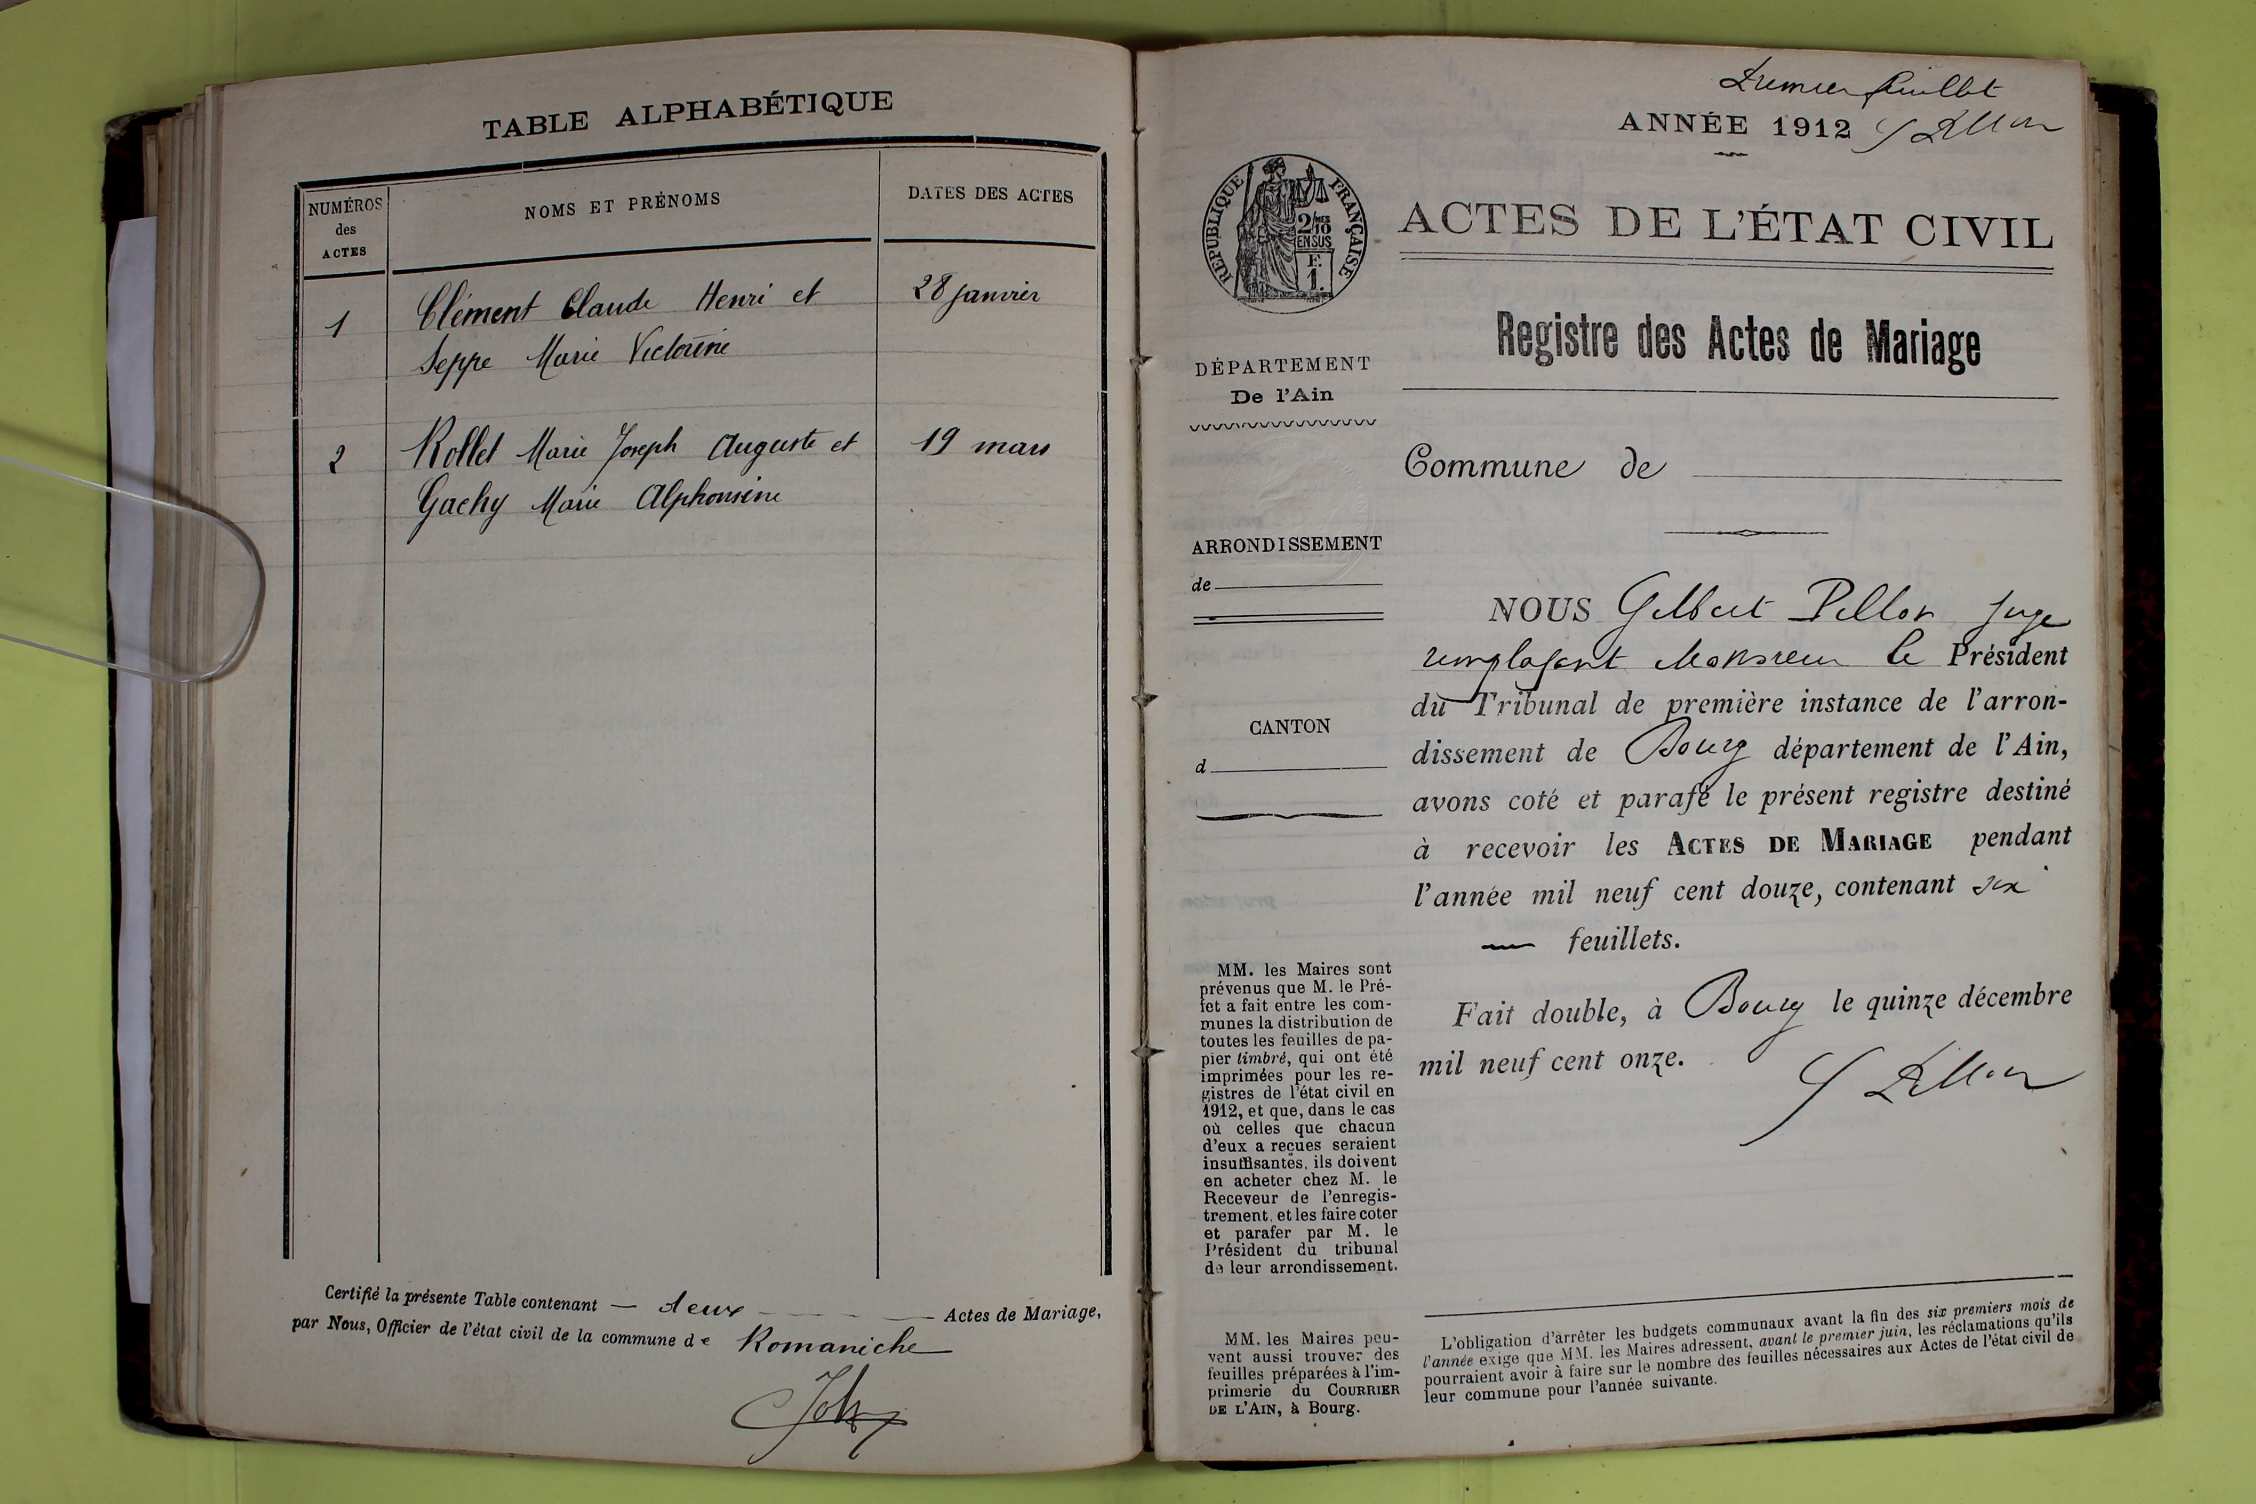 TABLE ALPHABÉTIQUE
NUMÉROS
des
ACTES
NOMS ET PRÉNOMS
DATES DES ACTES
1
Clément Claude Henri et
28 janvier
Seppe Marie Victorine
2
Rollet Marie Joseph Auguste et
19 mars
Gachy Marie Alphonsine
Certifié la présente Table contenant — deux — Actes de Mariage,
par Nous, Officier de l'état civil de la commune de Romanèche
Premier feuillet
ANNÉE 1912
RÉPUBLIQUE FRANÇAISE
2/10
EN SUS
F.
1.
ACTES DE L'ÉTAT CIVIL
Registre des Actes de Mariage
DÉPARTEMENT
De l'Ain
Commune de
ARRONDISSEMENT
de
CANTON
d
NOUS Gilbert Pellor Juge
remplaçant Monsieur le Président
du Tribunal de première instance de l'arron-
dissement de Bourg département de l'Ain,
avons coté et parafé le présent registre destiné
à recevoir les ACTES DE MARIAGE pendant
l'année mil neuf cent douze, contenant six
— feuillets.
Fait double, à Bourg le quinze décembre
mil neuf cent onze.
MM. les Maires sont
prévenus que M. le Pré-
fet a fait entre les com-
munes la distribution de
toutes les feuilles de pa-
pier timbré, qui ont été
imprimées pour les re-
gistres de l'état civil en
1912, et que, dans le cas
où celles que chacun
d'eux a reçues seraient
insuffisantes, ils doivent
en acheter chez M. le
Receveur de l'enregis-
trement, et les faire coter
et parafer par M. le
Président du tribunal
de leur arrondissement.
MM. les Maires peu-
vent aussi trouver des
feuilles préparées à l'im-
primerie du COURRIER
DE L'AIN, à Bourg.
L'obligation d'arrêter les budgets communaux avant la fin des six premiers mois de
l'année exige que MM. les Maires adressent, avant le premier juin, les réclamations qu'ils
pourraient avoir à faire sur le nombre des feuilles nécessaires aux Actes de l'état civil de
leur commune pour l'année suivante.